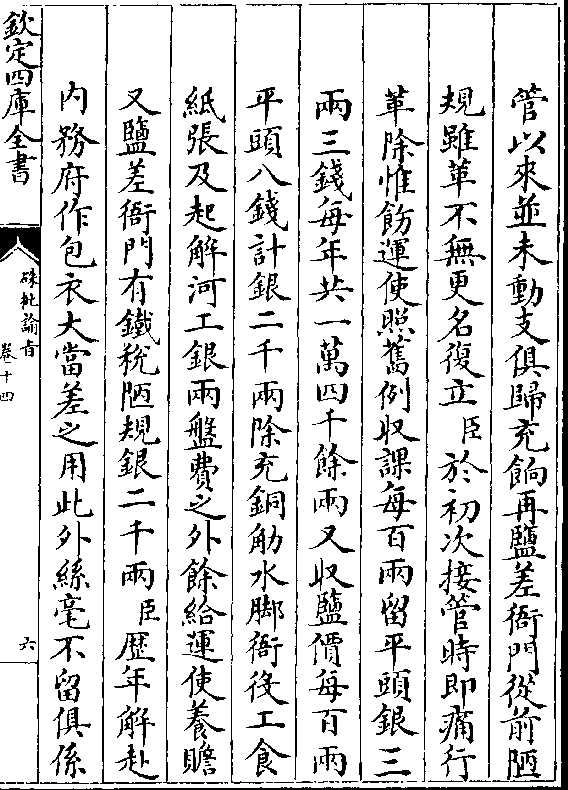 管以來並未動支俱歸充餉再鹽差衙門從前陋
規雖革不無更名復立臣於初次接管時即痛行
革除惟飭運使照舊例収課每百兩留平頭銀三
兩三錢每年共一萬四千餘兩又収鹽價每百兩
平頭八錢計銀二千兩除充銅觔水脚衙役工食
紙張及起解河工銀兩盤費之外餘給運使養贍
又鹽差衙門有鐵稅陋規銀二千兩臣歴年解赴
內務府作包衣大當差之用此外絲毫不留俱係
欽定四庫全書
硃批諭旨
卷十四
六